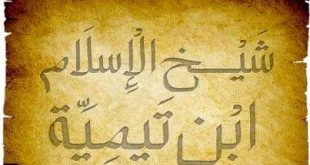 شَيْخ الْإِسْلَام
ابْن تَيمِيَّة